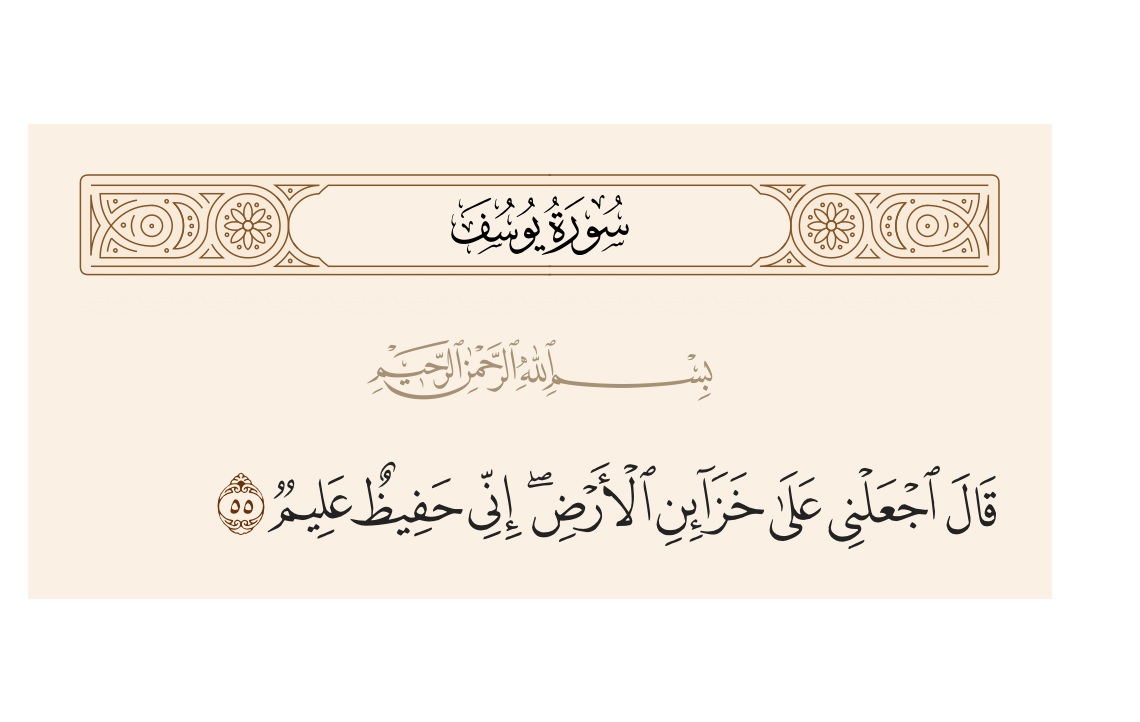 سُورَةُ يُوسُفَ
بِسْمِ ٱللَّهِ ٱلرَّحْمَٰنِ ٱلرَّحِيمِ
قَالَ ٱجْعَلْنِى عَلَىٰ خَزَآئِنِ ٱلْأَرْضِ ۖ إِنِّى حَفِيظٌ عَلِيمٌ ٥٥